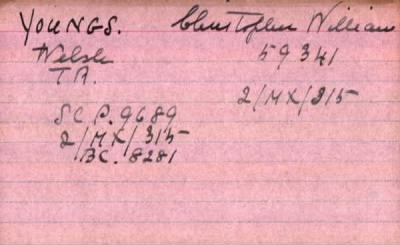 YOUNGS. Christopher William
Welsh 59341
T.A.
2/MX/315
SC P. 9689
2/MX/315
BC. 8281